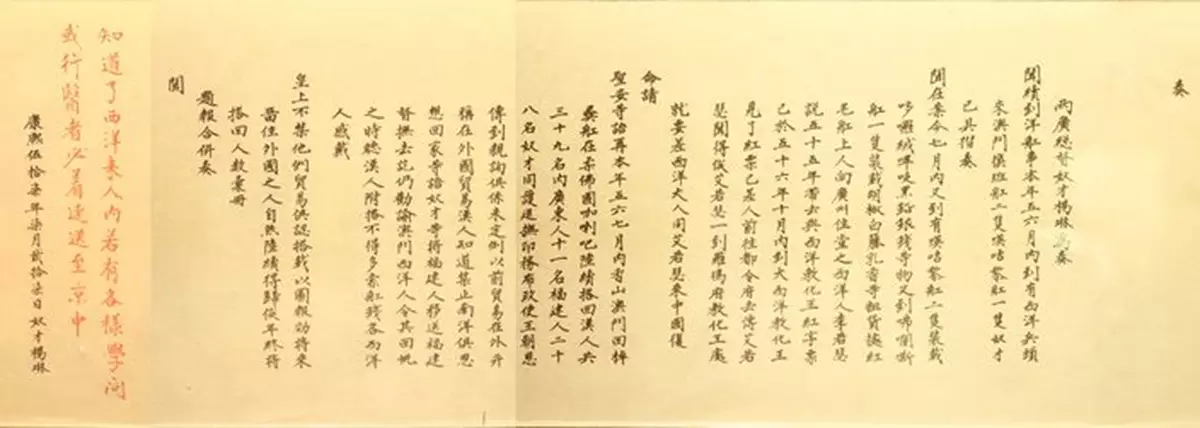 奏
兩廣總督奴才楊琳為奏
聞續到洋舡事本年五六月內到有西洋兵頭
來澳門換班舡二隻𠸄咭𠺕舡一隻奴才
已具摺奏
聞在案今七月內又到有𠸄咭𠺕舡二隻裝載
哆囉絨嗶吱黑鉛銀錢等物又到咈囒哂
舡一隻裝載胡椒白藤乳香等粗貨據紅
毛舡上人向廣州住堂之西洋人李若瑟
說五十五年帶去與西洋教化王紅字票
已於五十六年十月內到大西洋教化王
見了紅票已差人前往都令府去傳艾若
瑟聞得俟艾若瑟一到羅瑪府教化王處
就要差西洋大人同艾若瑟來中國復
命請
聖安等語再本年五六七月內香山澳門回棹
夷舡在柔佛國咖喇吧陸續搭回漢人共
三十九名內廣東人十一名福建人二十
八名奴才同護巡撫印務布政使王朝恩
傳到親詢俱係未定例以前貿易在外并
稱在外國貿易漢人知道禁止南洋俱思
想回家等語奴才等將福建人移送福建
督撫去訖仍勸諭澳門西洋人令其回帆
之時聽漢人附搭不得多索舡錢各西洋
人感戴
皇上不禁他們貿易俱認搭載以圖報効將來
留住外國之人自然陸續得歸俟年終將
搭回人數彙冊
題報合併奏
聞
知道了西洋來人內若有各樣學問
或行醫者必着速送至京中
康熙伍拾柒年柒月貳拾柒日奴才楊琳